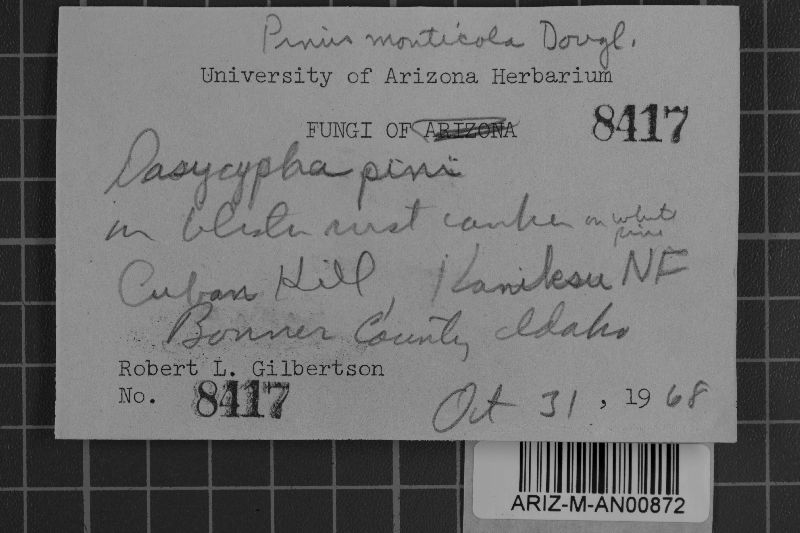 Pinus monticola Dougl.
University of Arizona Herbarium
FUNGI OF ARIZONA 8417
Dasycypha pini
on blister rust canker on white pine
Cuban Hill, Kaniksu NF
Bonner County Idaho
Robert L. Gilbertson
No. 8417
Oct 31, 1968
ARIZ-M-AN00872